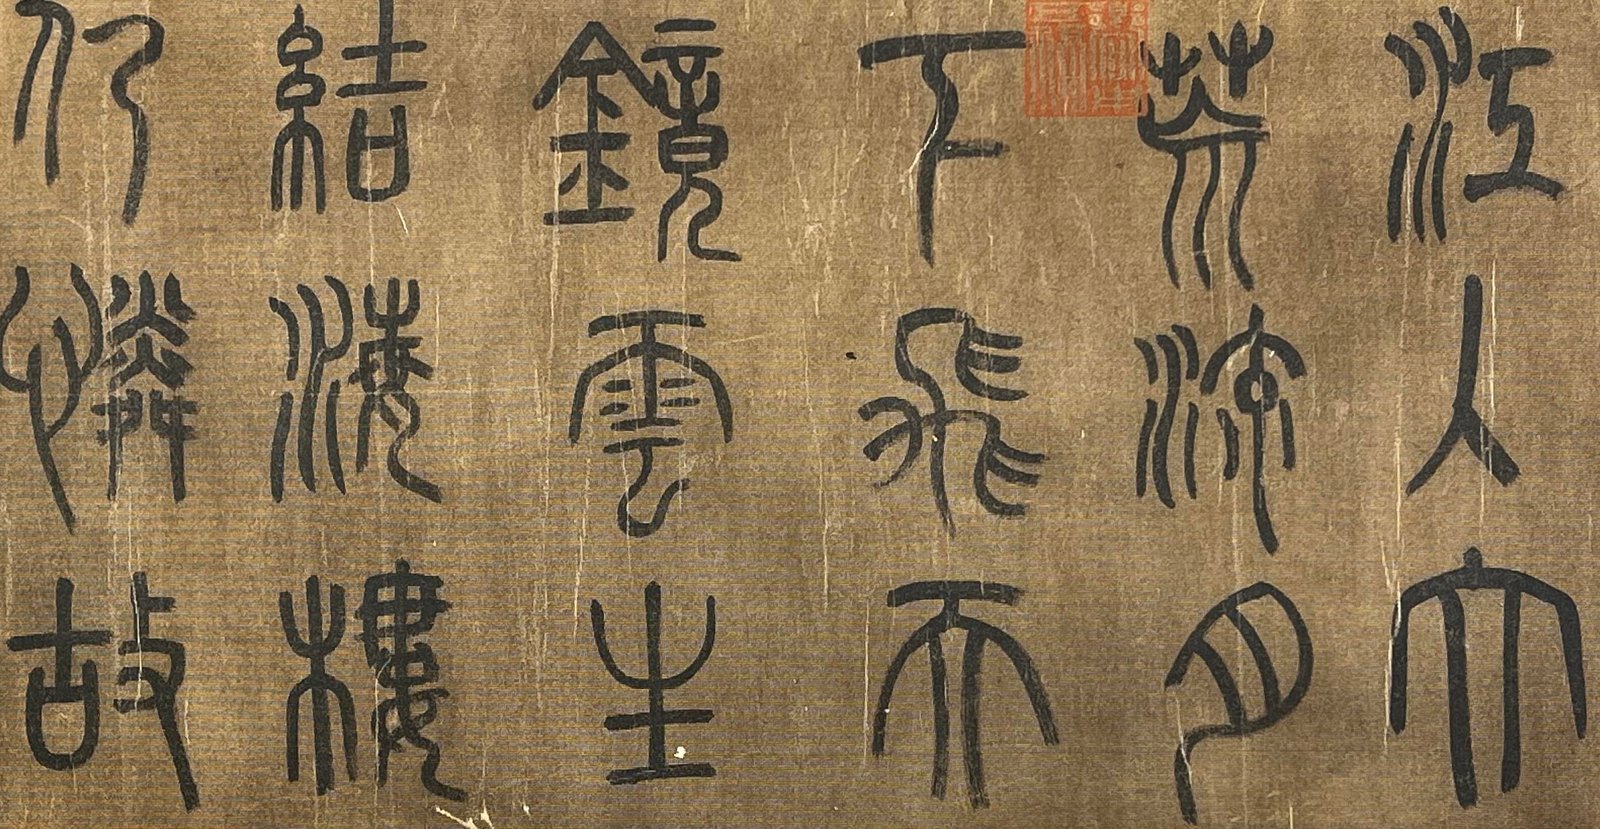 江入大
荒流月
下飛天
鏡雲生
結海樓
仍憐故